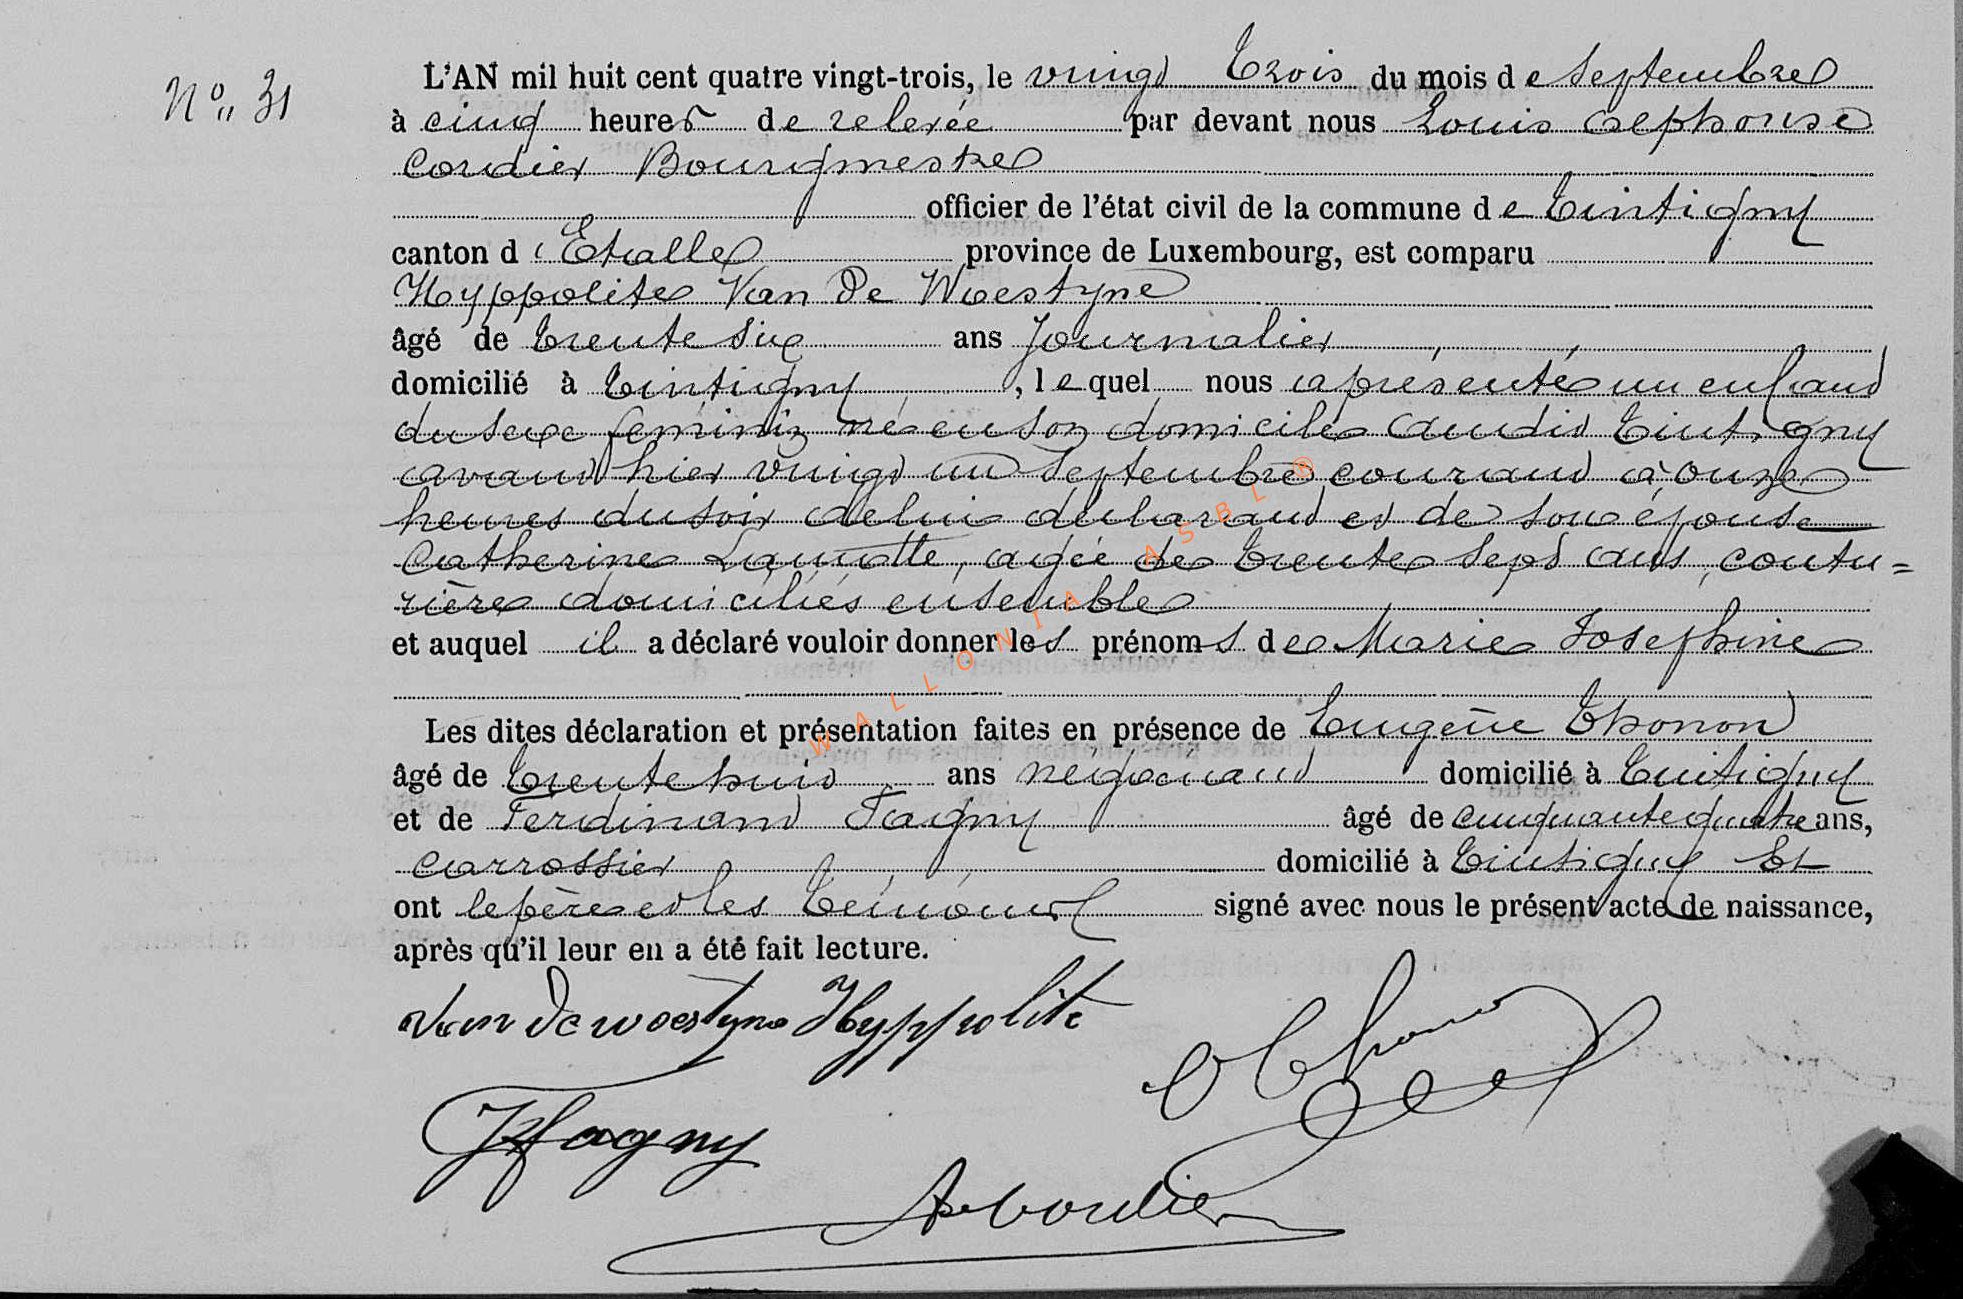 N° 31
L'AN mil huit cent quatre vingt-trois, le vingt trois du mois de septembre
à cinq heures de relevée par devant nous Louis Alphonse
Cordier Bourgmestre
officier de l'état civil de la commune de Tintigny
canton d'Etalle province de Luxembourg, est comparu
Hyppolite Van De Woestyne
âgé de trente six ans Journalier
domicilié à Tintigny, lequel nous a présenté un enfant
du sexe féminin né en son domicile audit Tintigny
avant hier vingt un septembre courant à onze
heures du soir de lui déclarant et de son épouse
Catherine Lamotte, agée de trente sept ans, coutu=
rière domiciliés ensemble
et auquel il a déclaré vouloir donner les prénoms de Marie Josephine
Les dites déclaration et présentation faites en présence de Eugène Thonon
âgé de trente huit ans négociant domicilié à Tintigny
et de Ferdinand Fagny âgé de cinquante quatre ans,
carrossier domicilié à Tintigny Et
ont le père et les témoins signé avec nous le présent acte de naissance,
après qu'il leur en a été fait lecture.
Van De woestyne Hyppolite
Thonon
Fagny
A Cordier
WALLONIA ASBL ®